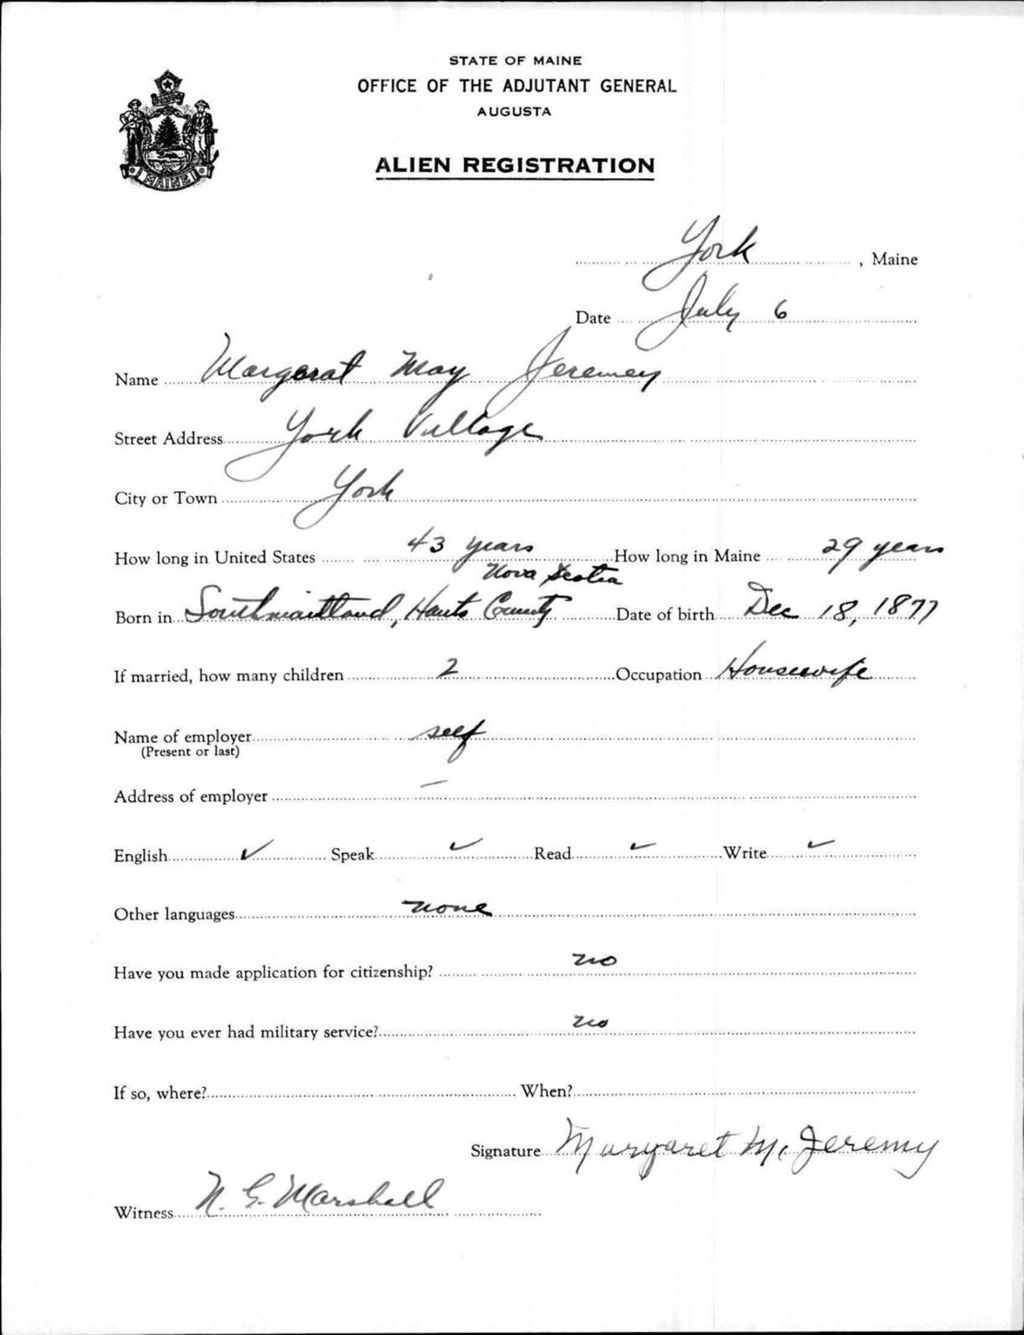 STATE OF MAINE
OFFICE OF THE ADJUTANT GENERAL
AUGUSTA
ALIEN REGISTRATION
MAINE
York, Maine
Date July 6
Name Margarat May Jeremey
Street Address York Village
City or Town York
How long in United States 43 years How long in Maine 29 years
Nova Scotia
Born in Southmaitland, Hants County Date of birth Dec 18, 1877
If married, how many children 2 Occupation Housewife
Name of employer self
(Present or last)
Address of employer —
English ✓ Speak ✓ Read ✓ Write ✓
Other languages none
Have you made application for citizenship? no
Have you ever had military service? no
If so, where? When?
Signature Margaret M. Jeremy
Witness N. G. Marshall